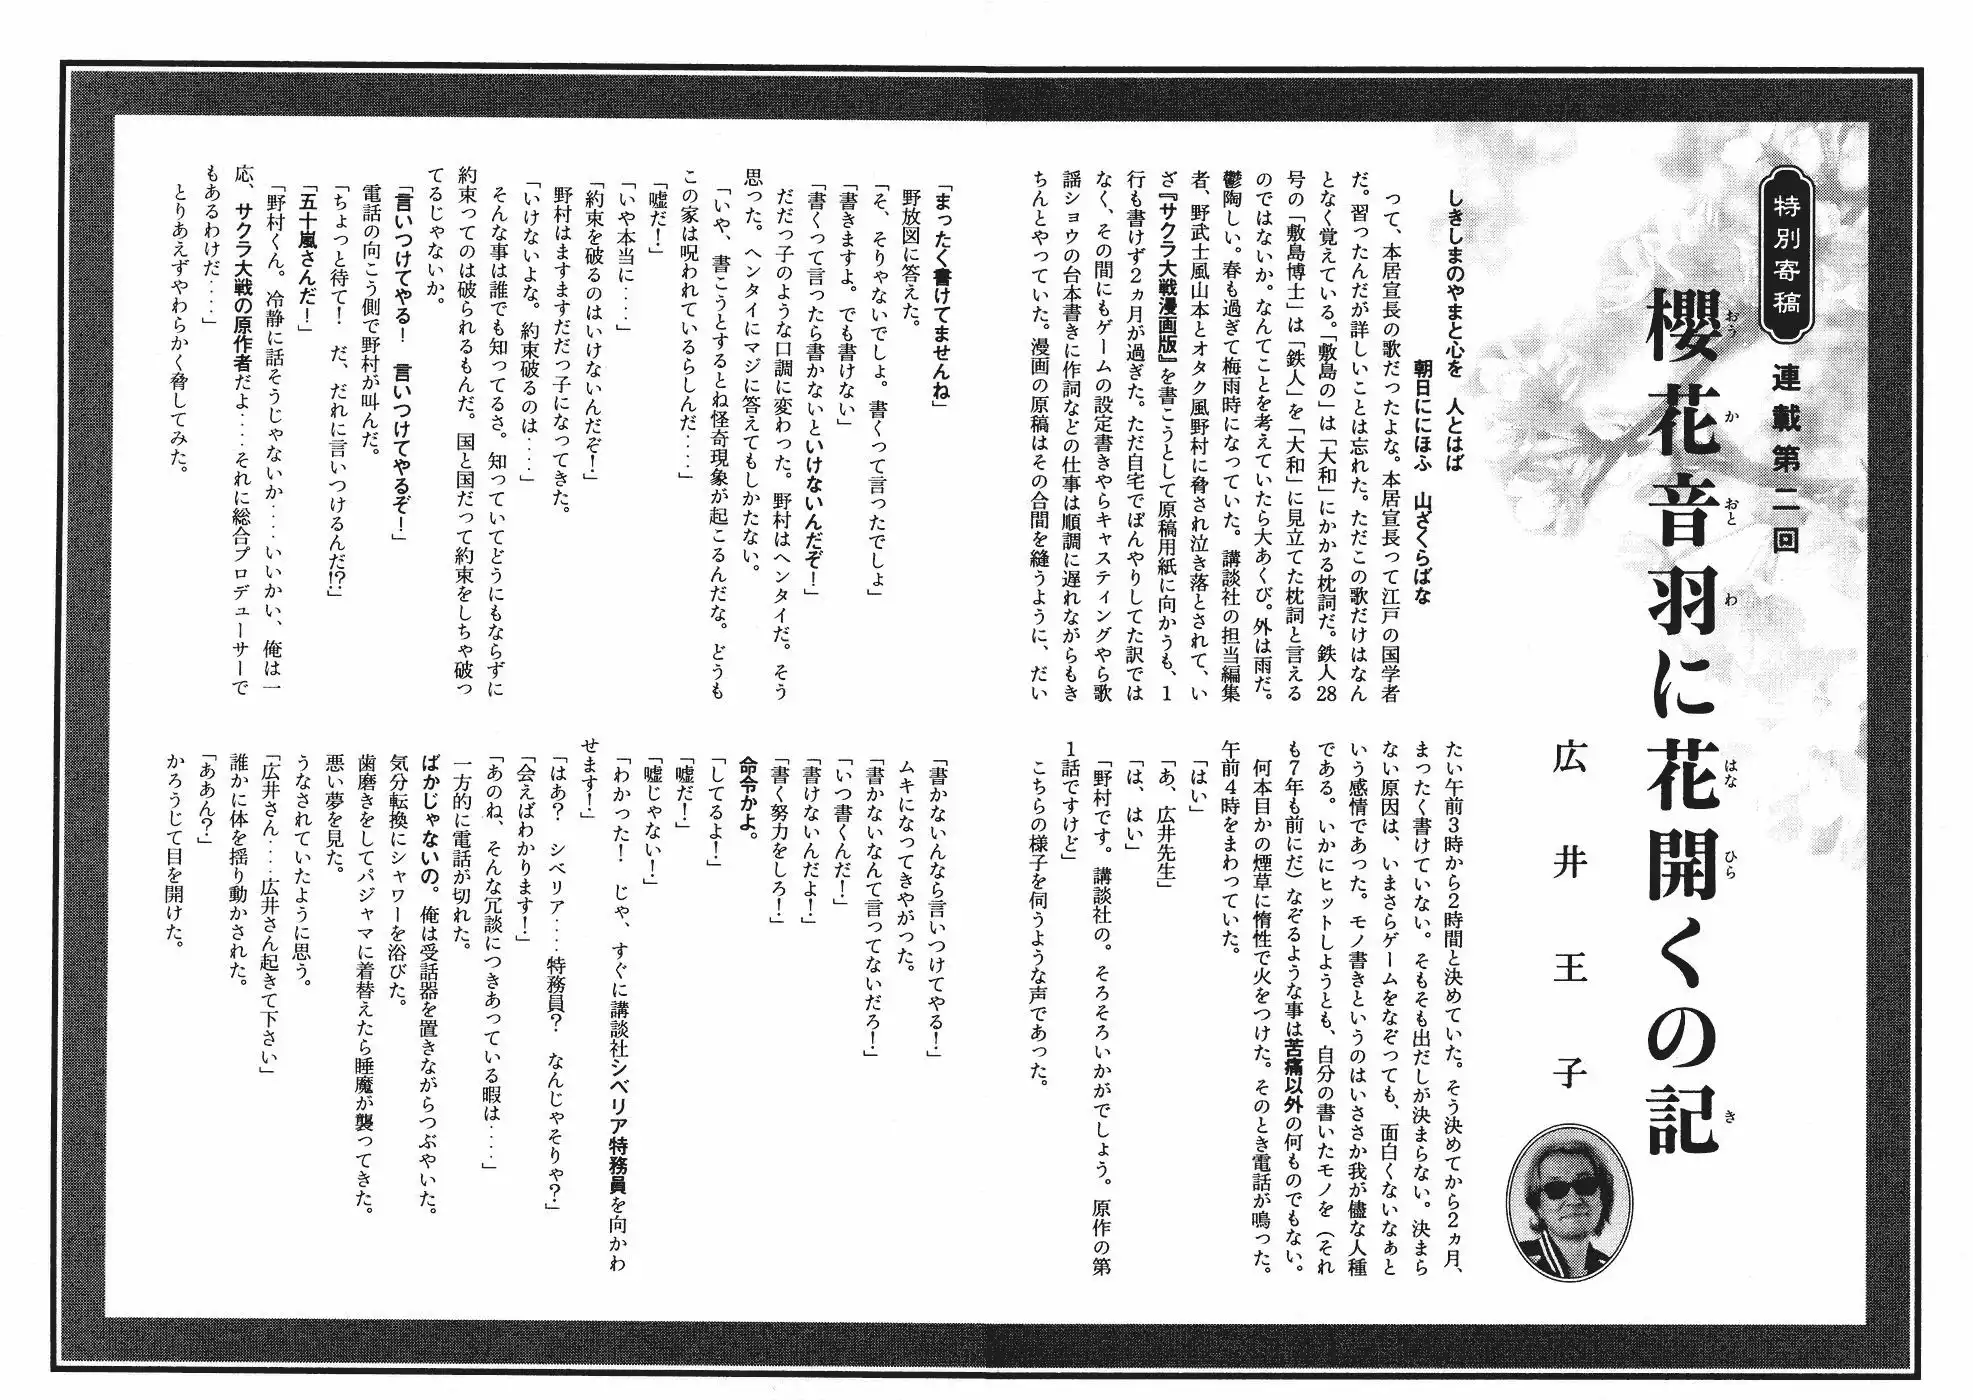 特別寄稿
連載第二回
櫻花音羽に花開くの記
おうかおとわはなひらき
広井王子
しきしまのやまと心を　人とはば
朝日ににほふ　山ざくらばな
　って、本居宣長の歌だったよな。本居宣長って江戸の国学者
だ。習ったんだが詳しいことは忘れた。ただこの歌だけはなん
となく覚えている。「敷島の」は「大和」にかかる枕詞だ。鉄人28
号の「敷島博士」は「鉄人」を「大和」に見立てた枕詞と言える
のではないか。なんてことを考えていたら大あくび。外は雨だ。
鬱陶しい。春も過ぎて梅雨時になっていた。講談社の担当編集
者、野武士風山本とオタク風野村に脅され泣き落とされて、い
ざ『サクラ大戦漫画版』を書こうとして原稿用紙に向かうも、1
行も書けず2ヵ月が過ぎた。ただ自宅でぼんやりしてた訳では
なく、その間にもゲームの設定書きやらキャスティングやら歌
謡ショウの台本書きに作詞などの仕事は順調に遅れながらもき
ちんとやっていた。漫画の原稿はその合間を縫うように、だい
たい午前3時から2時間と決めていた。そう決めてから2ヵ月、
まったく書けていない。そもそも出だしが決まらない。決まら
ない原因は、いまさらゲームをなぞっても、面白くないなぁと
いう感情であった。モノ書きというのはいささか我が儘な人種
である。いかにヒットしようとも、自分の書いたモノを（それ
も7年も前にだ）なぞるような事は苦痛以外の何ものでもない。
　何本目かの煙草に惰性で火をつけた。そのとき電話が鳴った。
午前4時をまわっていた。
「はい」
「あ、広井先生」
「は、はい」
「野村です。講談社の。そろそろいかがでしょう。原作の第
1話ですけど」
　こちらの様子を伺うような声であった。
「まったく書けてませんね」
　野放図に答えた。
「そ、そりゃないでしょ。書くって言ったでしょ」
「書きますよ。でも書けない」
「書くって言ったら書かないといけないんだぞ！」
　だだっ子のような口調に変わった。野村はヘンタイだ。そう
思った。ヘンタイにマジに答えてもしかたない。
「いや、書こうとするとね怪奇現象が起こるんだな。どうも
この家は呪われているらしんだ‥‥」
「嘘だ！」
「いや本当に‥‥」
「約束を破るのはいけないんだぞ！」
　野村はますますだだっ子になってきた。
「いけないよな。約束破るのは‥‥」
　そんな事は誰でも知ってるさ。知っていてどうにもならずに
約束ってのは破られるもんだ。国と国だって約束をしちゃ破っ
てるじゃないか。
「言いつけてやる！　言いつけてやるぞ！」
　電話の向こう側で野村が叫んだ。
「ちょっと待て！　だ、だれに言いつけるんだ!?」
「五十嵐さんだ！」
「野村くん。冷静に話そうじゃないか‥‥いいかい、俺は一
応、サクラ大戦の原作者だよ‥‥それに総合プロデューサーで
もあるわけだ‥‥」
　とりあえずやわらかく脅してみた。
「書かないんなら言いつけてやる！」
　ムキになってきやがった。
「書かないなんて言ってないだろ！」
「いつ書くんだ！」
「書けないんだよ！」
「書く努力をしろ！」
　命令かよ。
「してるよ！」
「嘘だ！」
「嘘じゃない！」
「わかった！　じゃ、すぐに講談社シベリア特務員を向かわ
せます！」
「はあ？　シベリア‥‥特務員？　なんじゃそりゃ？」
「会えばわかります！」
「あのね、そんな冗談につきあっている暇は‥‥」
　一方的に電話が切れた。
　ばかじゃないの。俺は受話器を置きながらつぶやいた。
　気分転換にシャワーを浴びた。
　歯磨きをしてパジャマに着替えたら睡魔が襲ってきた。
　悪い夢を見た。
　うなされていたように思う。
「広井さん‥‥広井さん起きて下さい」
　誰かに体を揺り動かされた。
「ああん？」
　かろうじて目を開けた。